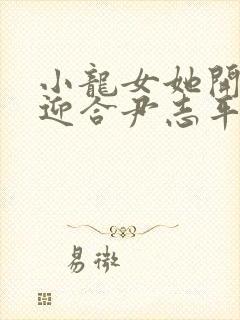 小龍女她開
迎合尹志平
易微